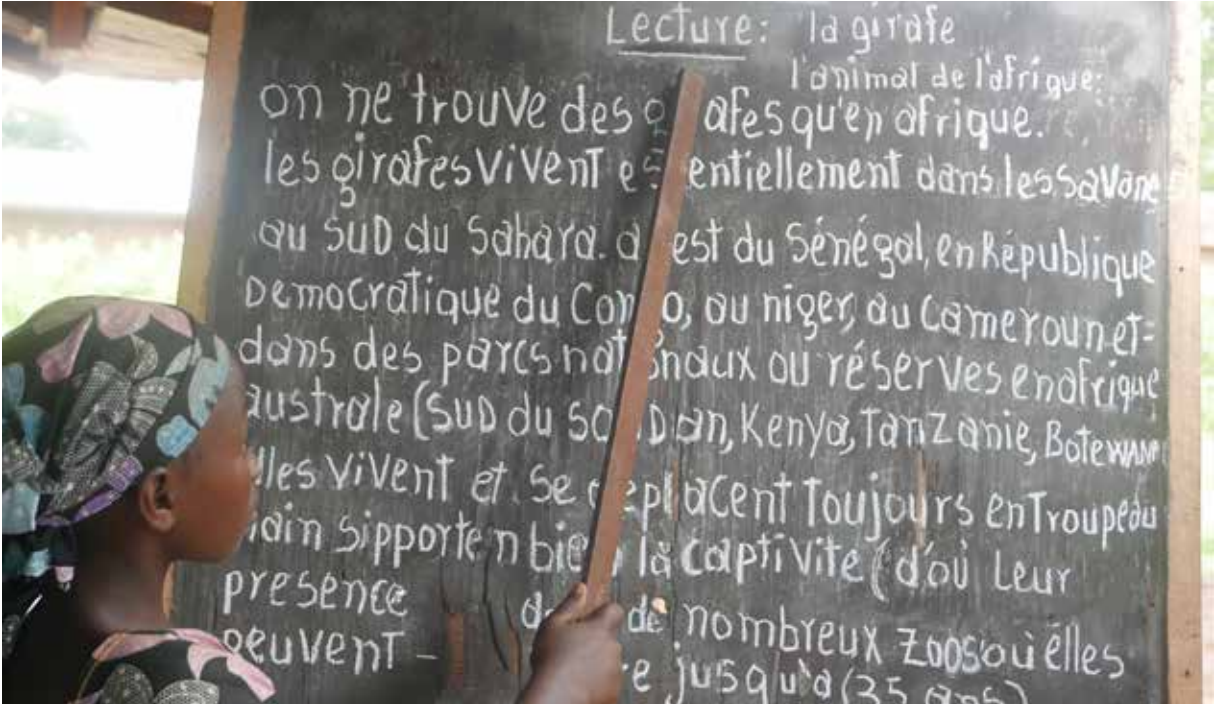 Lecture: la girafe
l'animal de l'afrique:
on ne trouve des girafes qu'en afrique.
les girafes vivent essentiellement dans les savane
au SUD du Sahara. à est du Sénégal, en République
Democratique du Congo, au niger, au Cameroun et-
dans des parcs nationaux ou réserves en afrique
australe (SUD du Soudan, Kenya, Tanzanie, Botewan
elles vivent et se deplacent Toujours en Troupeau
sipporte n bien la captivité (d'où Leur
presence de nombreux zoos où élles
peuvent - jusqu'à (35 ans)